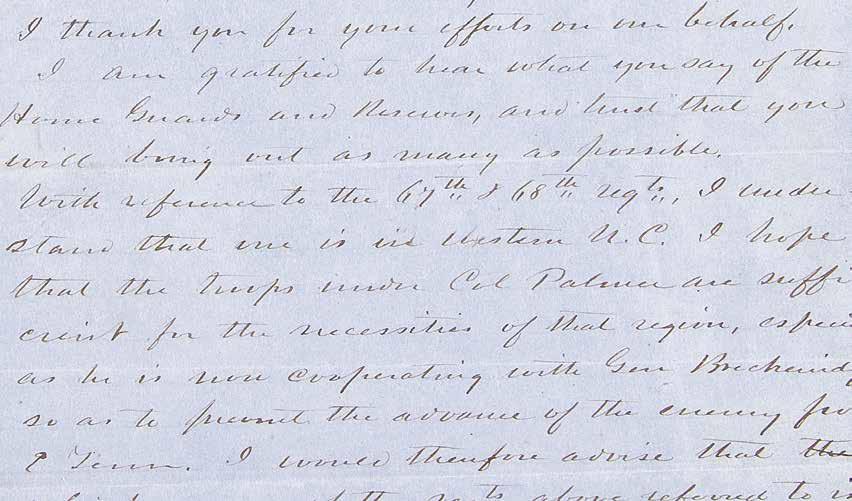 I thank you for your efforts on our behalf.
I am gratified to hear what you say of the
Home Guards and Reserves, and trust that you
will bring out as many as possible.
With reference to the 67th & 68th regts, I under-
stand that one is in Western N.C. I hope
that the troops under Col Palmer are suffi
cient for the necessities of that region, especia
as he is now cooperating with Gen Breckenridg
so as to prevent the advance of the enemy fro
E Tenn. I would therefore advise that the
regts above referred to